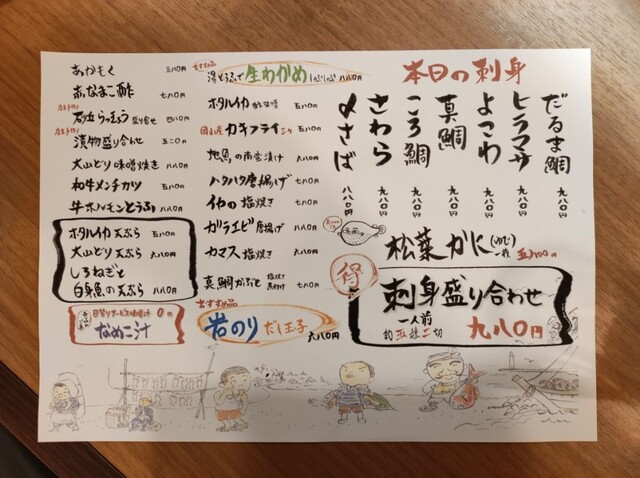 本日の刺身
だるま鯛 九八〇円
ヒラマサ 九八〇円
よこわ 九八〇円
真鯛 九八〇円
ころ鯛 九八〇円
さわら 九八〇円
〆さば 八八〇円
松葉がに(ゆで)
一枚
得
刺身盛り合わせ
一人前
九八〇円
おすすめ品
湯どうふで生わかめしゃぶしゃぶ 八八〇円
ホタルイカ酢味噌 五八〇円
カキフライ
地魚の南蛮漬け 六八〇円
ハタハタ唐揚げ 七八〇円
イカの塩焼き 七八〇円
ガラエビ唐揚げ 八八〇円
カマス塩焼き 六八〇円
真鯛かぶと 塩焼き 煮付け 七八〇円
おすすめ品
岩のりだし玉子 六八〇円
あかもく 三八〇円
赤なまこ酢 七八〇円
砂丘らっきょう 盛り合せ 四八〇円
漬物盛り合わせ 五二〇円
大山どり味噌焼き 八八〇円
和牛メンチカツ 五八〇円
牛ホルモンとうふ 六八〇円
ホタルイカ天ぷら 五八〇円
大山どり天ぷら 六八〇円
しろねぎと
白身魚の天ぷら 八八〇円
日替りサービス味噌汁 0円
なめこ汁